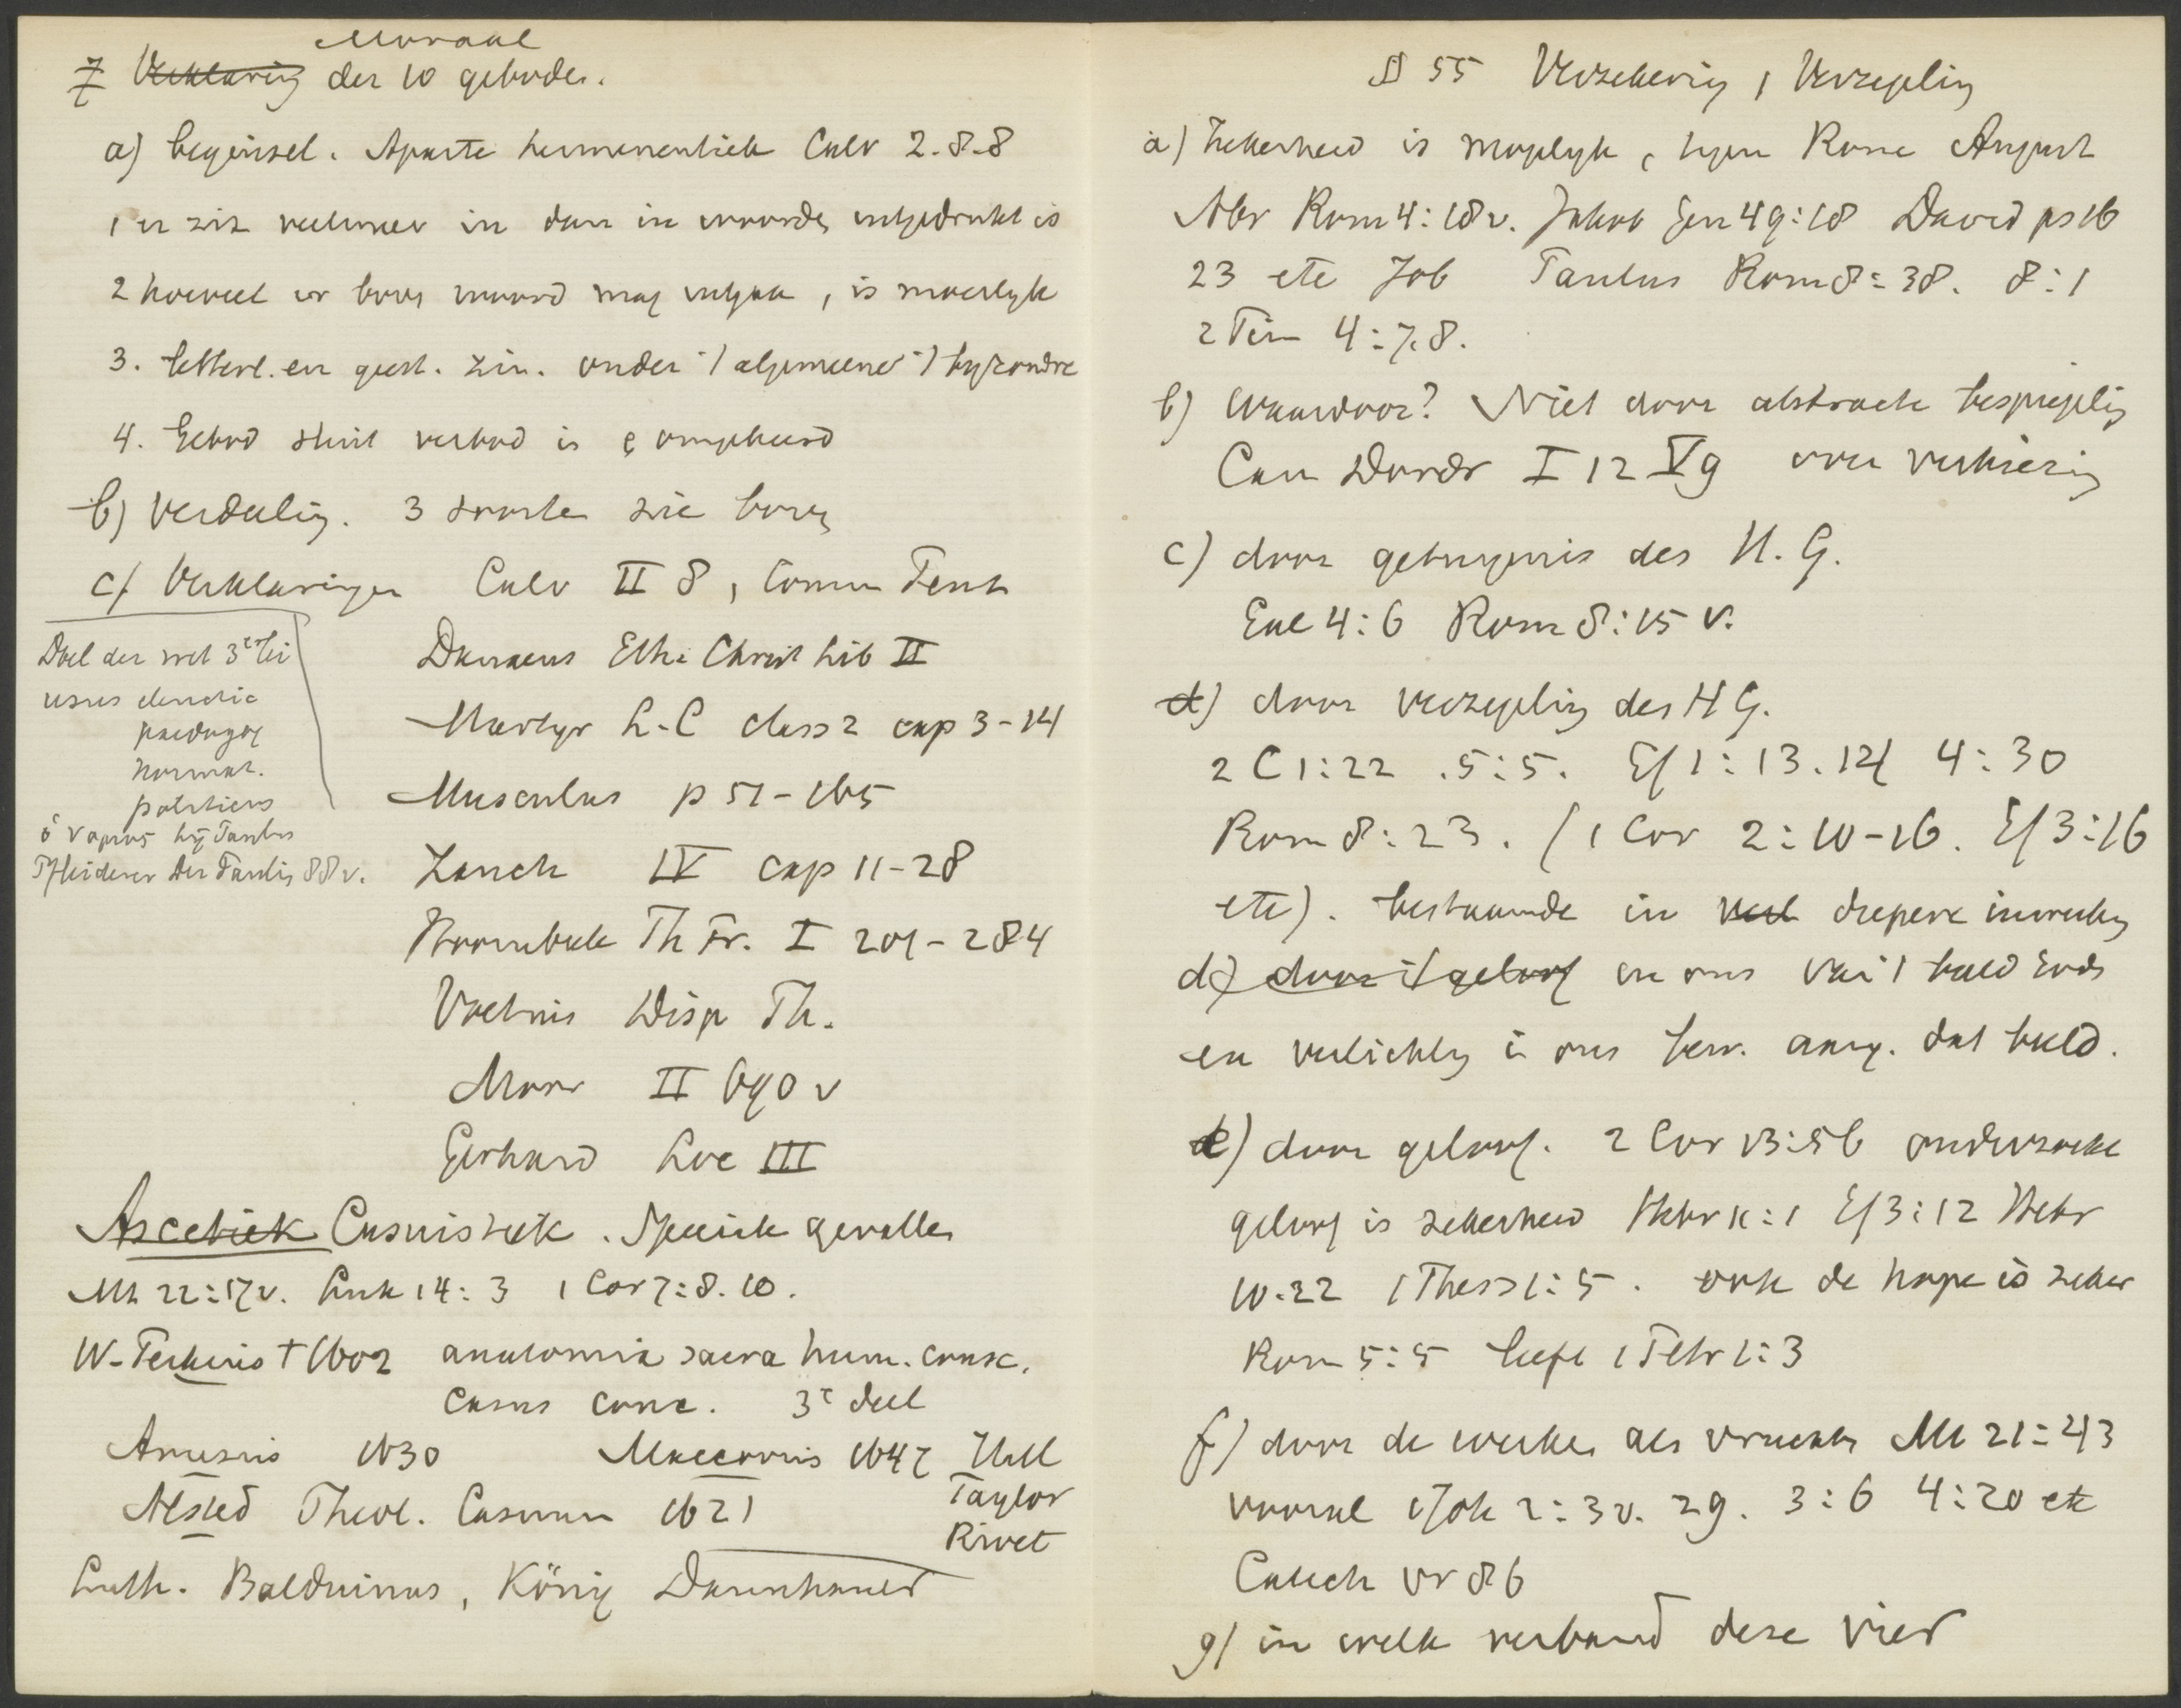 Moraal
7 Verklaring der 10 geboden.
a) beginsel. Aparte hermeneutiek Calv 2.8.8
1 er zit veelmeer in dan in woorden uitgedrukt is
2 hoeveel er boven woord mag uitgaan, is moeilyk
3. letterl. en geest. zin. onder 't algemeene 't byzondre
4. Gebod sluit verbod in & omgekeerd
b) Verdeeling. 3 soorten zie boven
c) Verklaringen Calv II 8, Comm Pent
Doel der wet 3erlei
usus elenctic
paedagog
normat.
politicus
ὁ νομος bij Paulus
Pfleiderer Der Paulin 88v.
Danaeus Eth. Christ lib II
Martyr L.C class 2 cap 3-14
Musculus p 51-165
Zanch IV cap 11-28
Hoornbeek Th Pr. I 201-284
Voetius Disp Th.
Moor II 690 v
Gerhard Loc III
Ascetiek Casuistiek. Speciale gevallen
Mt 22:17v. Luk 14:3 1 Cor 7:8.10.
W. Perkins † 1602 anatomia sacra hum. consc.
Casus conc. 3e deel
Amesius 1630 Maccovius 1647 Hall
Alsted Theol. Casuum 1621 Taylor
Rivet
Luth. Balduinus, König Dannhauer
§ 55 Verzekering, Verzegeling
a) Zekerheid is mogelyk, tegen Rome August
Abr Rom 4:18v. Jakob Gen 49:18 David ps 16
23 etc Job Paulus Rom 8:38. 8:1
2 Tim 4:7.8.
b) Waardoor? Niet door abstracte bespiegeling
Can Dordr I 12 V 9 over verkiezing
c) door getuigenis des H. G.
Gal 4:6 Rom 8:15 v.
d) door verzegeling des H G.
2 C 1:22. 5:5. Ef 1:13.14 4:30
Rom 8:23. (1 Cor 2:10-16. Ef 3:16
etc). bestaande in diepere inwerking
d) door 't geloof in ons van 't beeld Gods
en verlichting in ons bew. aang. dat beeld.
e) door geloof. 2 Cor 13:5b onderzoeke
geloof is zekerheid Hebr 11:1 Ef 3:12 Hebr
10:22 1 Thess 1:5. ook de hope is zeker
Rom 5:5 liefe 1 Petr 1:3
f) door de werken als vruchten Mt 21:43
vooral 1 Joh 2:3v. 29. 3:6 4:20 etc
Catech vr 86
g) in welk verband deze vier